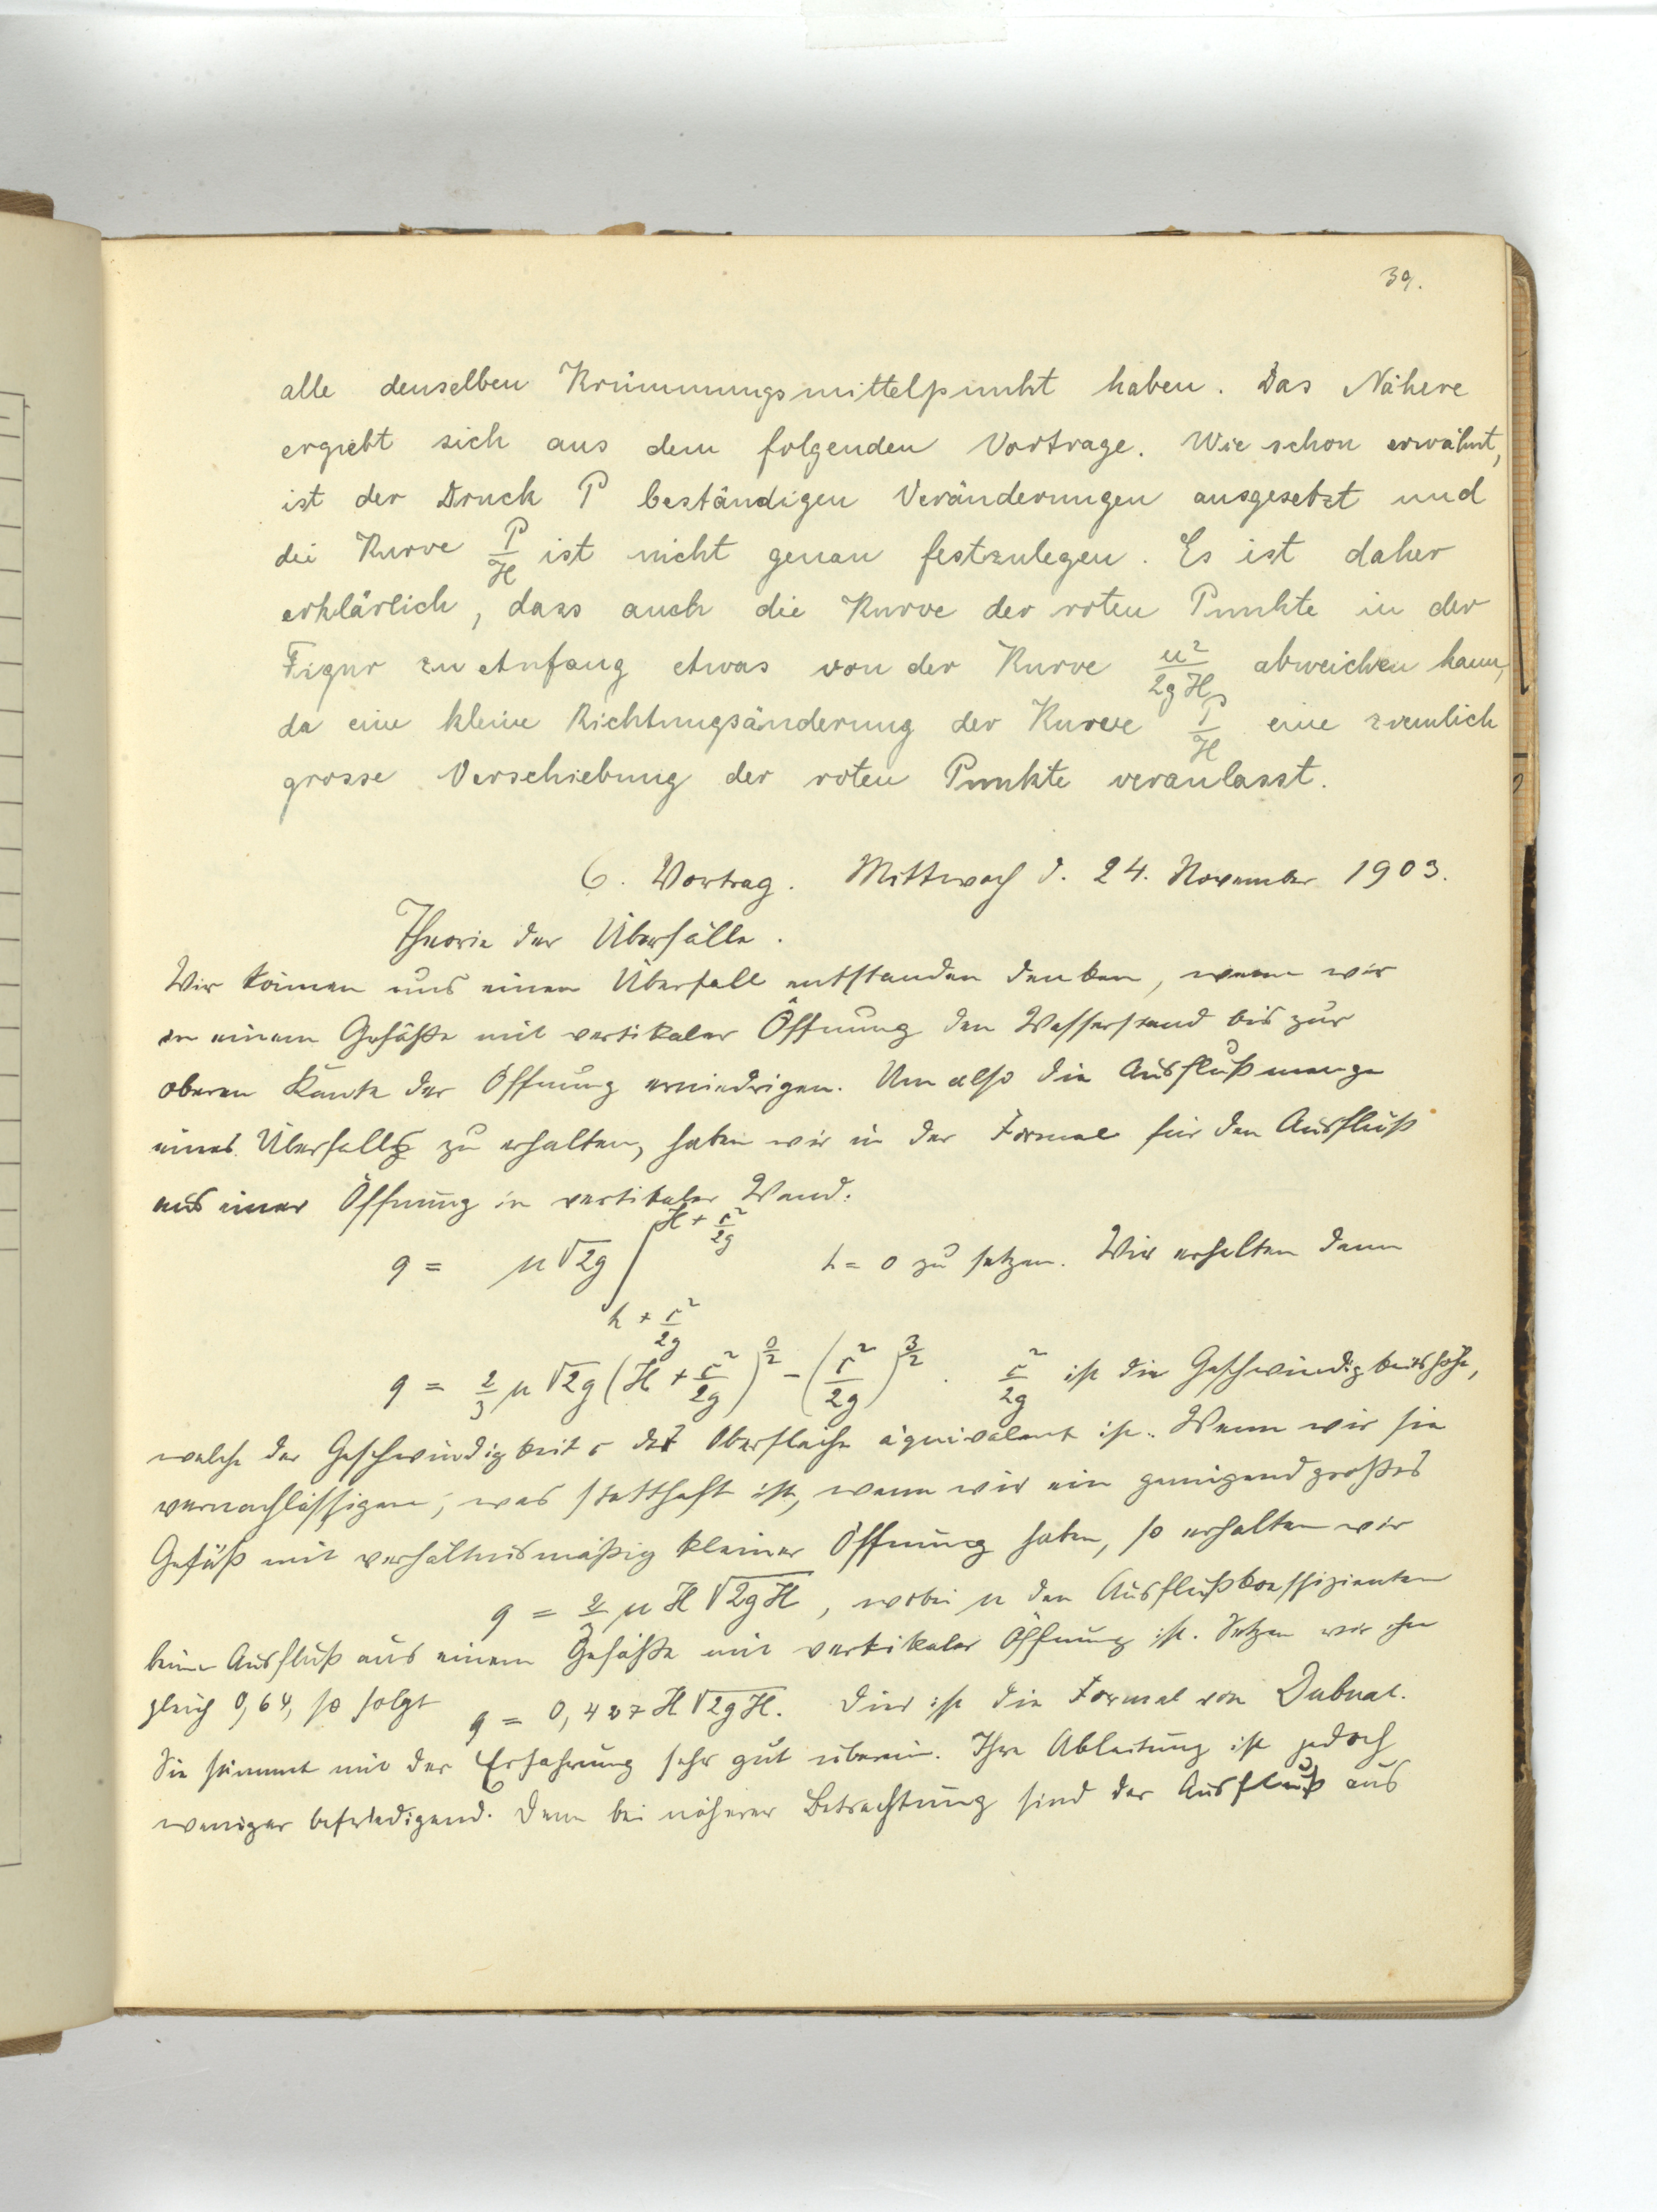 39.
alle denselben Krümmungsmittelpunkt haben. Das Nähere
ergiebt sich aus dem folgenden Vortrage. Wie schon erwähnt,
ist der Druck P beständigen Veränderungen ausgesetzt und
die Kurve P/H ist nicht genau festzulegen. Es ist daher
erklärlich, dass auch die Kurve der roten Punkte in der
Figur zu Anfang etwas von der Kurve u²/2gH abweichen kann,
da eine kleine Richtungsänderung der Kurve P/H eine ziemlich
grosse Verschiebung der roten Punkte veranlasst.
6. Vortrag. Mittwoch d. 24. November 1903.
Theorie der Überfälle.
Wir können uns einen Überfall entstanden denken, wenn wir
in einem Gefäße mit vertikaler Öffnung den Wasserstand bis zur
oberen Kante der Öffnung erniedrigen. Um also die Ausflußmenge
eines Überfalls zu erhalten, haben wir in der Formel für den Ausfluß
aus einer Öffnung in vertikaler Wand:
q = μ√2g ∫_{h + c²/2g}^{H + c²/2g} h = 0 zu setzen. Wir erhalten dann
q = 2/3 μ √2g (H + c²/2g)^{3/2} − (c²/2g)^{3/2}. c²/2g ist die Geschwindigkeitshöhe,
welche der Geschwindigkeit c der Oberfläche äquivalent ist. Wenn wir sie
vernachlässigen, was statthaft ist, wenn wir ein genügend großes
Gefäß mit verhältnismäßig kleiner Öffnung haben, so erhalten wir
q = 2/3 μ H √2gH, wobei μ den Ausflußkoeffizienten
beim Ausfluß aus einem Gefäße mit vertikaler Öffnung ist. Setzen wir ihn
gleich 0,64, so folgt q = 0,427 H √2gH. Dies ist die Formel von Dubuat.
Sie stimmt mit der Erfahrung sehr gut überein. Ihre Ableitung ist jedoch
weniger befriedigend. Denn bei näherer Betrachtung sind der Ausfluß aus